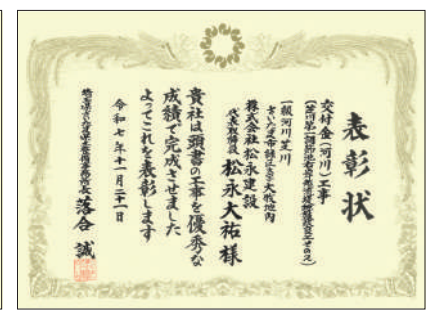 表彰状
交付金(河川)工事
(芝川第一調節池右岸築堤護岸整備工その2)
一級河川芝川
さいたま市緑区大字大牧地内
株式会社松永建設
代表取締役 松永大祐様
貴社は頭書の工事を優秀な
成績で完成させました
よってこれを表彰します
令和七年十一月二十一日
落合誠